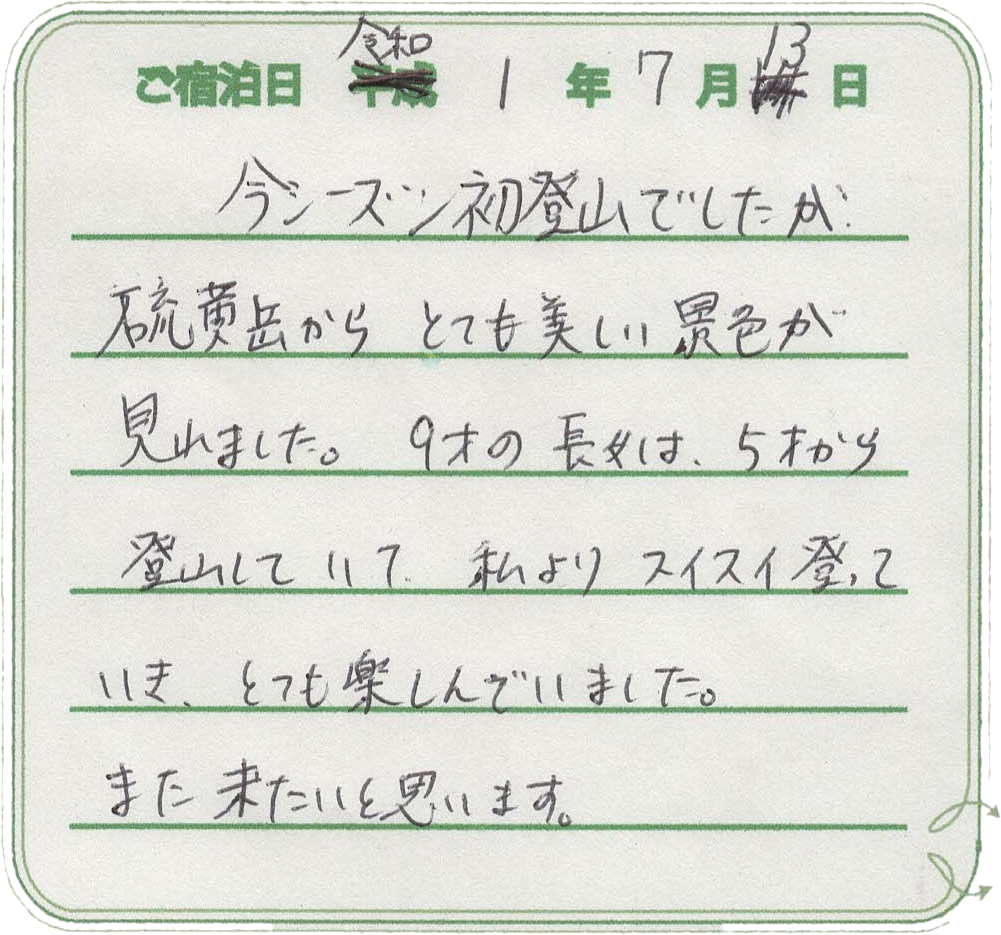 ご宿泊日 令和 1 年 7 月 13 日
今シーズン初登山でしたが、
硫黄岳から とても美しい景色が
見れました。 9才の長女は、5才から
登山していて、私よりスイスイ登って
いき、とても楽しんでいました。
また来たいと思います。